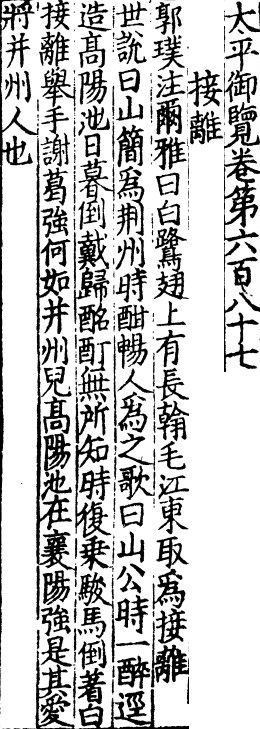 太平御覽卷第六百八十七
接離
郭璞注爾雅曰白鷺翅上有長翰毛江東取爲接離
世說曰山簡爲荆州時酣暢人爲之歌曰山公時一醉逕
造髙陽池日暮倒戴歸酩酊無所知時復乗駿馬倒著白
接離舉手謝葛強何如并州兒髙陽池在襄陽強是其愛
將并州人也